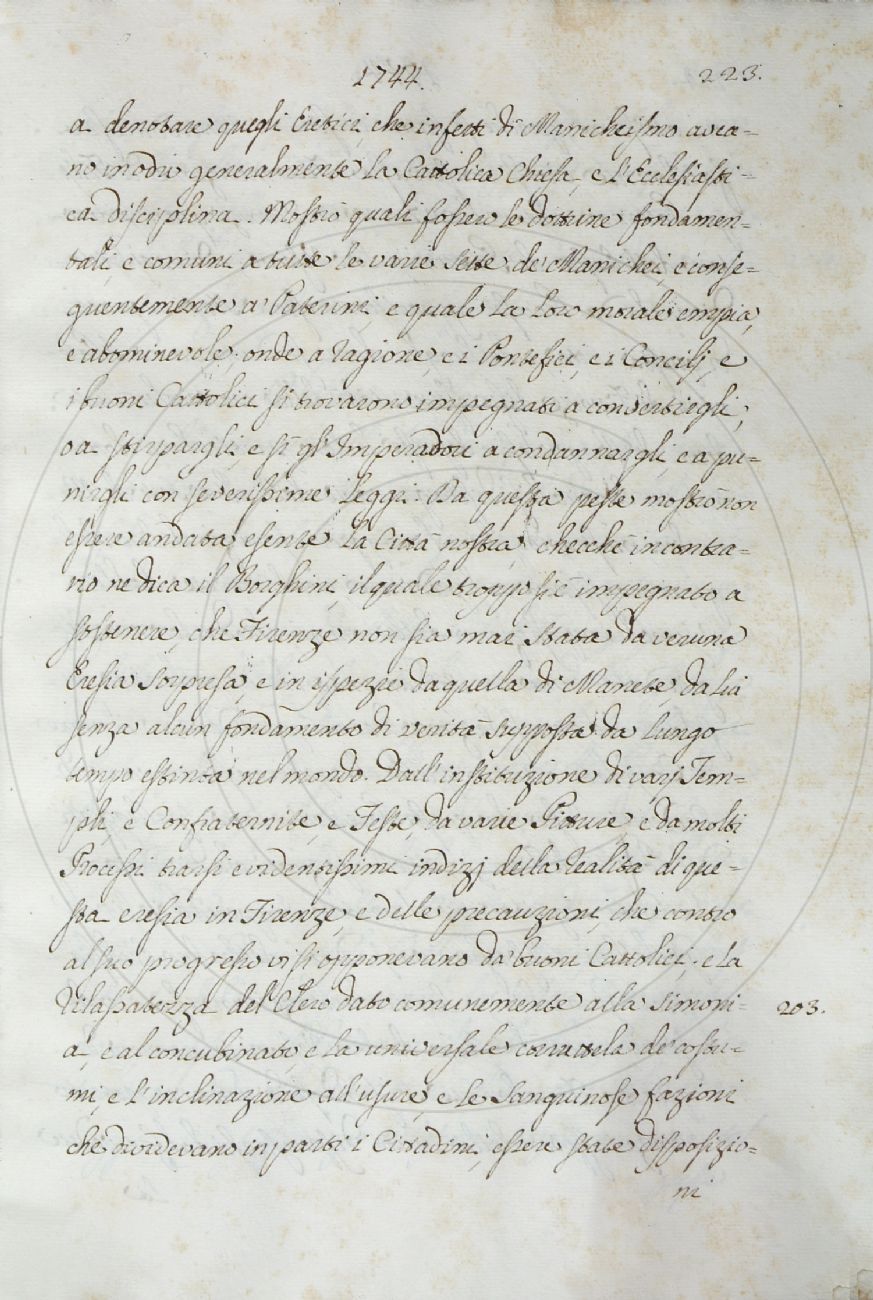 1744.
223.
a denotare quegli Eretici, che infetti di Manicheismo avea=
no in odio generalmente la Cattolica Chiesa, e l'Ecclesiasti=
ca disciplina. Mostrò quali fossero le dottrine fondamen=
tali, e comuni a tutte le varie Sette de' Manichei, e conse=
guentemente a' Paterini, e quale la loro morale empia,
e abominevole; onde a ragione, e i Pontefici, e i Concilj, e
i buoni Cattolici si trovarono impegnati a convertirgli,
o a stirpargli, e sì gl'Imperadori a condannargli, e a pu=
nirgli con severissime Leggi. Da questa peste mostrò non
essere andata esente la Città nostra, checchè in contra=
rio ne dica il Borghini, il quale troppo si è impegnato a
sostenere, che Firenze non sia mai stata da veruna
Eresia sorpresa, e in ispezie da quella di Manete, da lui
senza alcun fondamento di verità supposta da lungo
tempo estinta nel mondo. Dall'instituzione di varj Tem=
pli, e Confraternite, e Feste, da varie Pitture, e da molti
Processi trasse evidentissimi indizj della realità di que=
sta eresia in Firenze, e delle precauzioni, che contro
al suo progresso vi si opponevano da' buoni Cattolici. e la
rilassatezza del Clero dato comunemente alla simoni=
203.
a, e al concubinato, e la universale corruttela de' costu=
mi, e l'inclinazione all'usure, e le sanguinose fazioni
che dividevano in parti i Cittadini, essere state disposizio=
ni